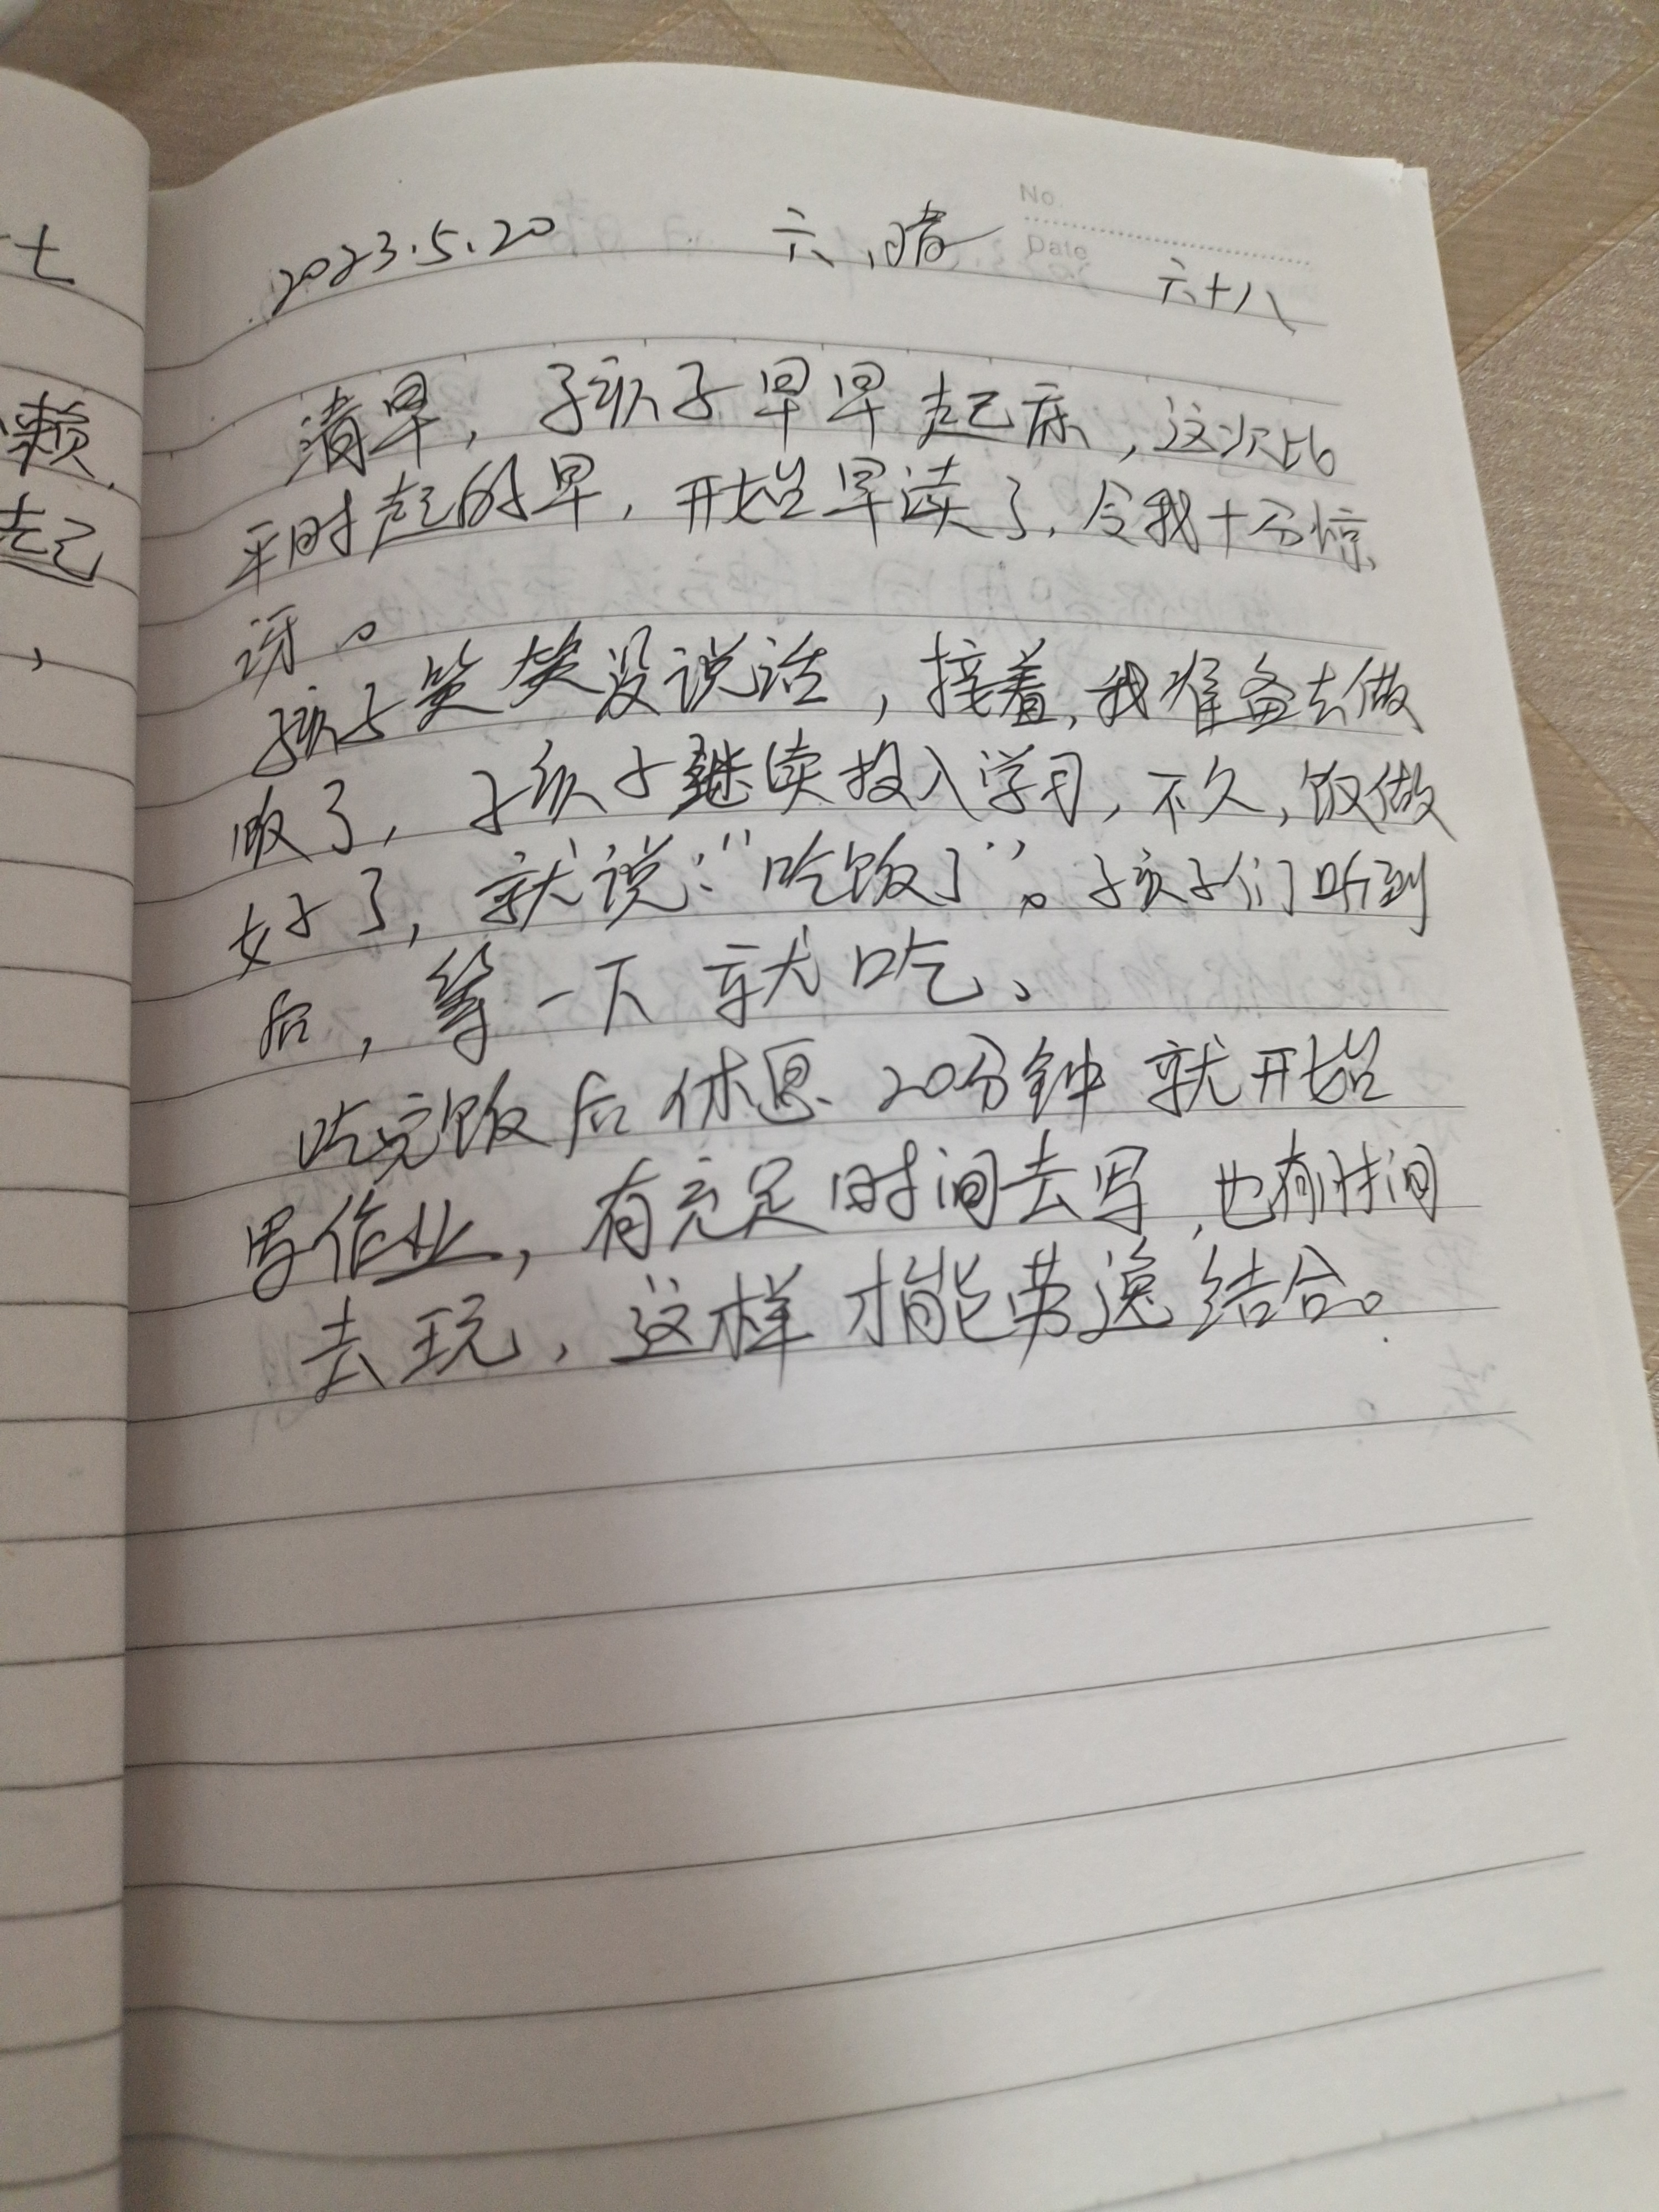 2023.5.20 六 晴
No.
Date
六十八
清早，孩子早早起床，这次比
平时起的早，开始早读了，令我十分惊
讶。
孩子笑笑没说话，接着，我准备去做
饭了，孩子继续投入学习，不久，饭做
好了，就说：“吃饭了”。孩子们听到
后，等一下就吃、
吃完饭后休息20分钟就开始
写作业，有充足时间去写，也有时间
去玩，这样才能劳逸结合。
七
懒
起
，